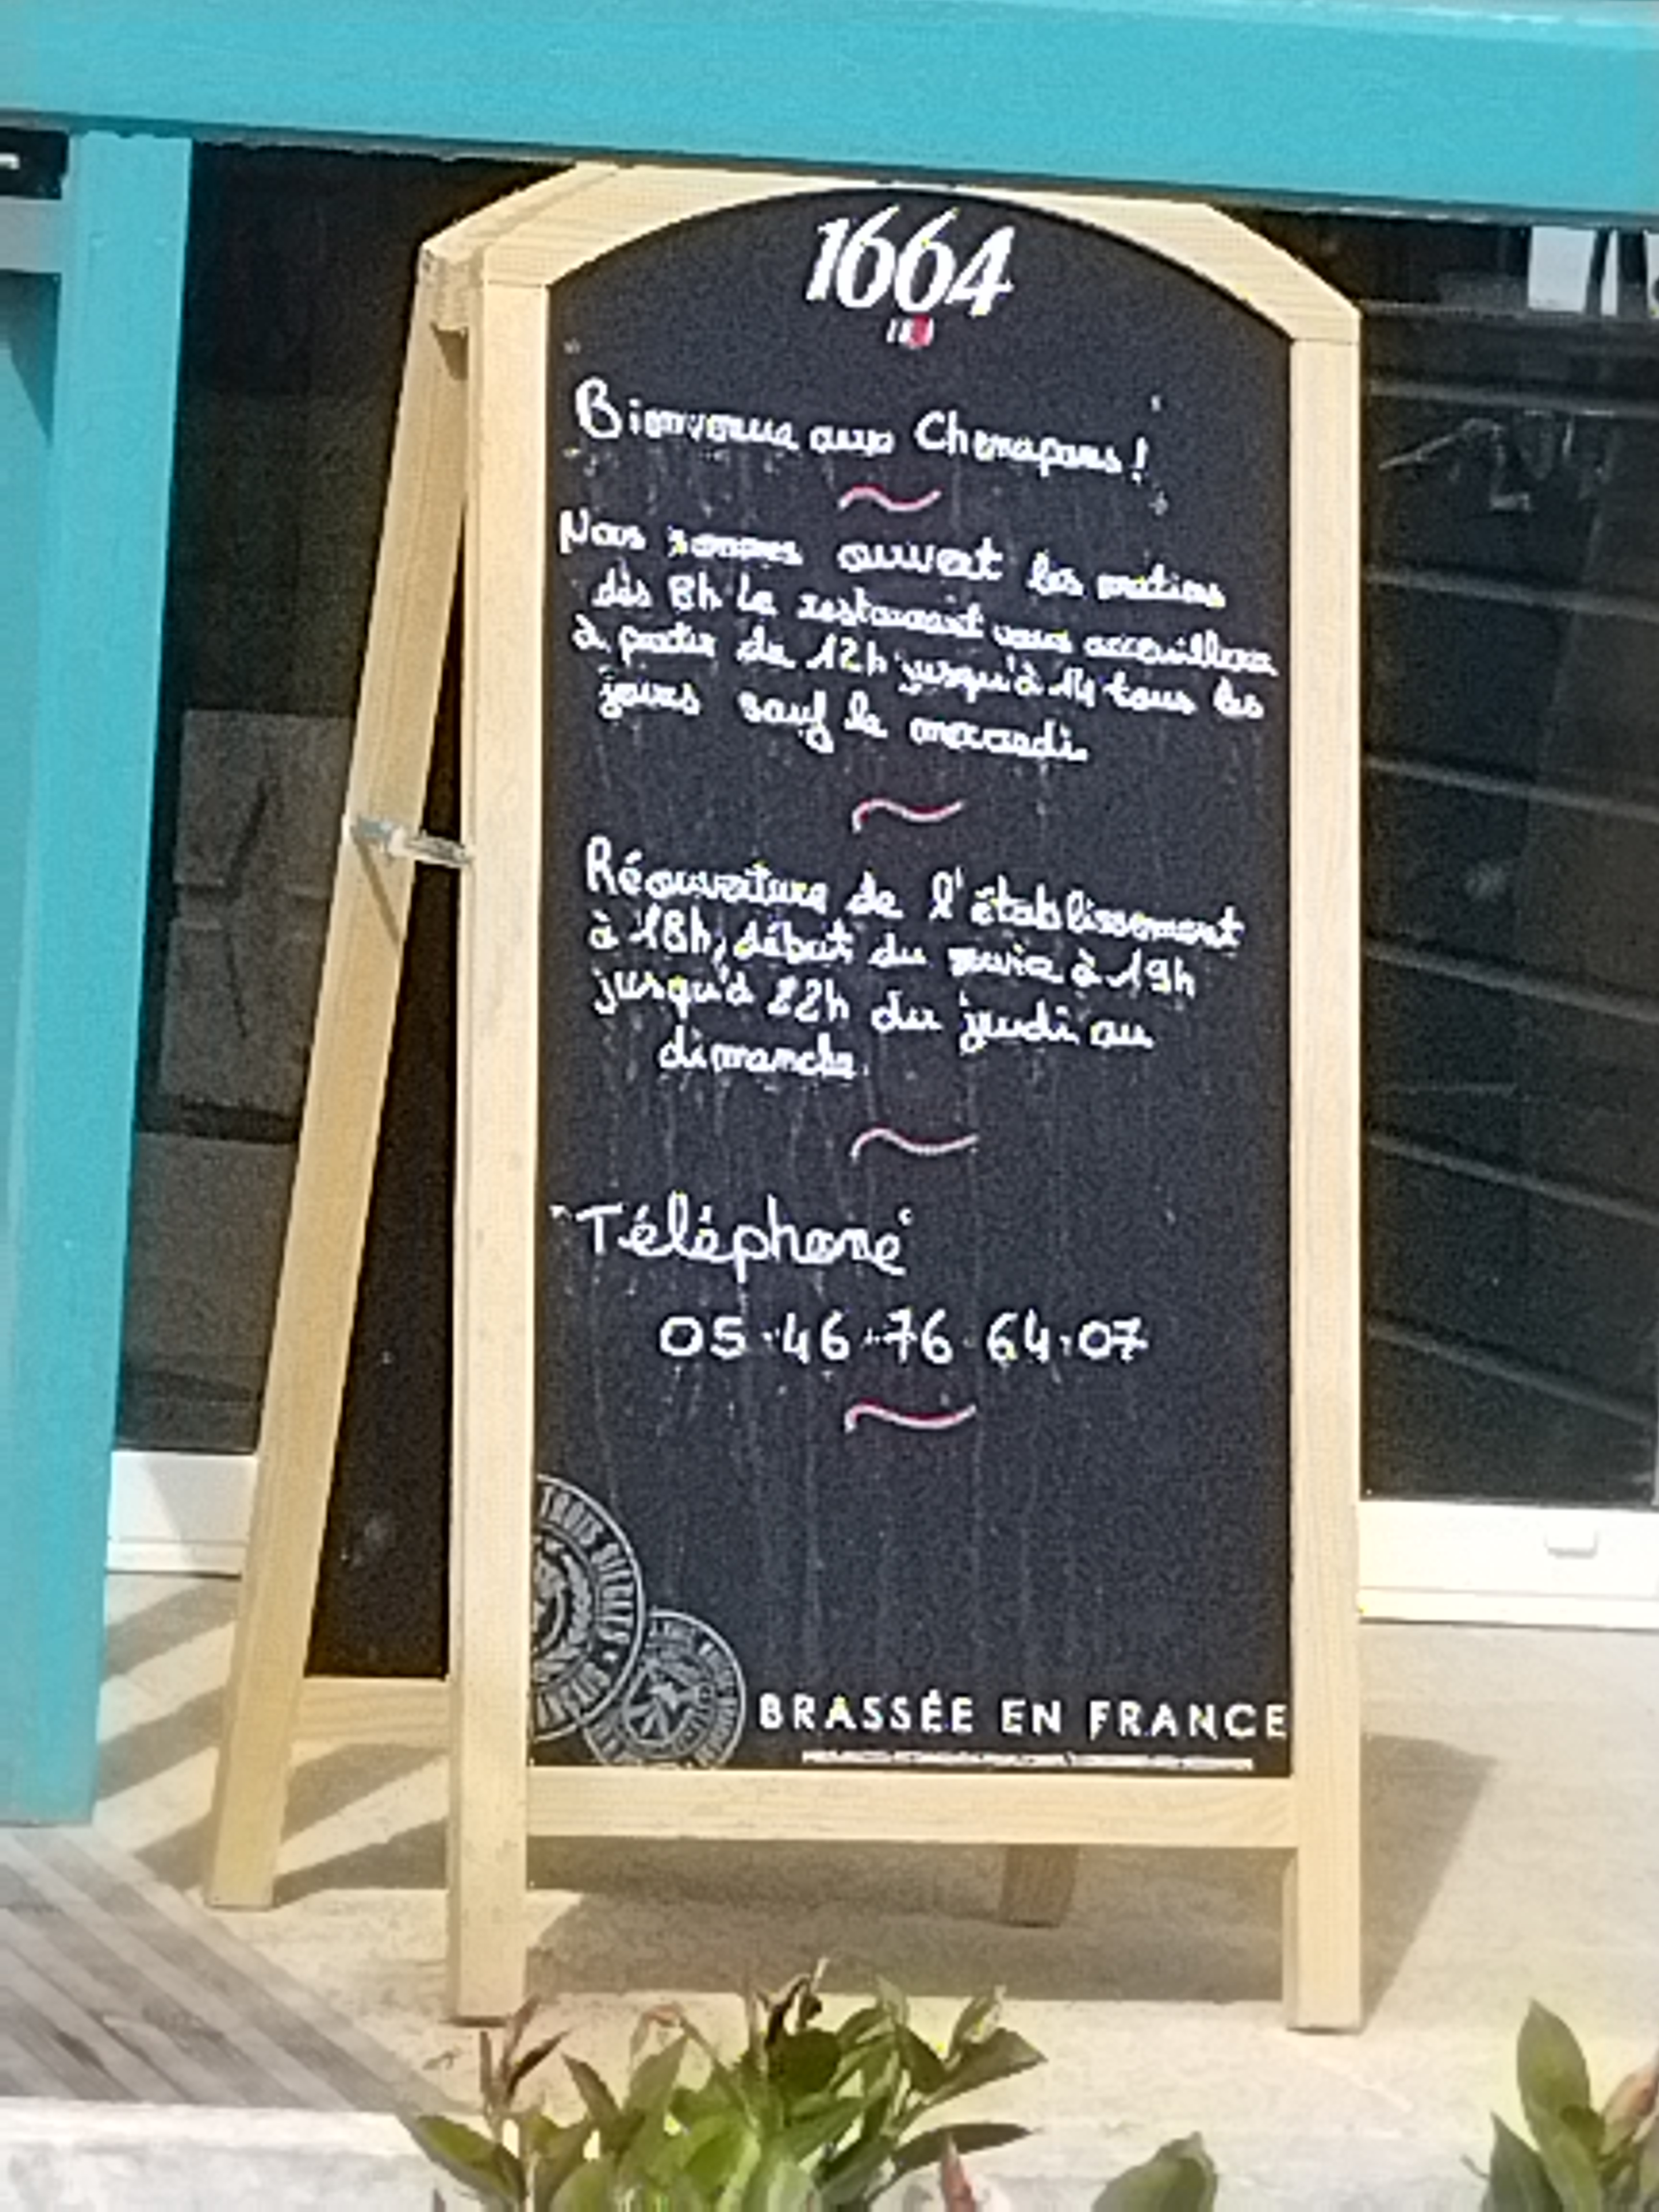 1664
Bienvenue aux Chenapans !
Nous sommes ouvert les matins
dès 8h Le restaurant vous accueillera
à partir de 12h jusqu'à 14 tous les
jours sauf le mercredi.
Réouverture de l'établissement
à 18h, début du service à 19h
jusqu'à 22h du jeudi au
dimanche.
Téléphone
05.46.76.64.07
TROIS SIECLES
BRASSÉE EN FRANCE